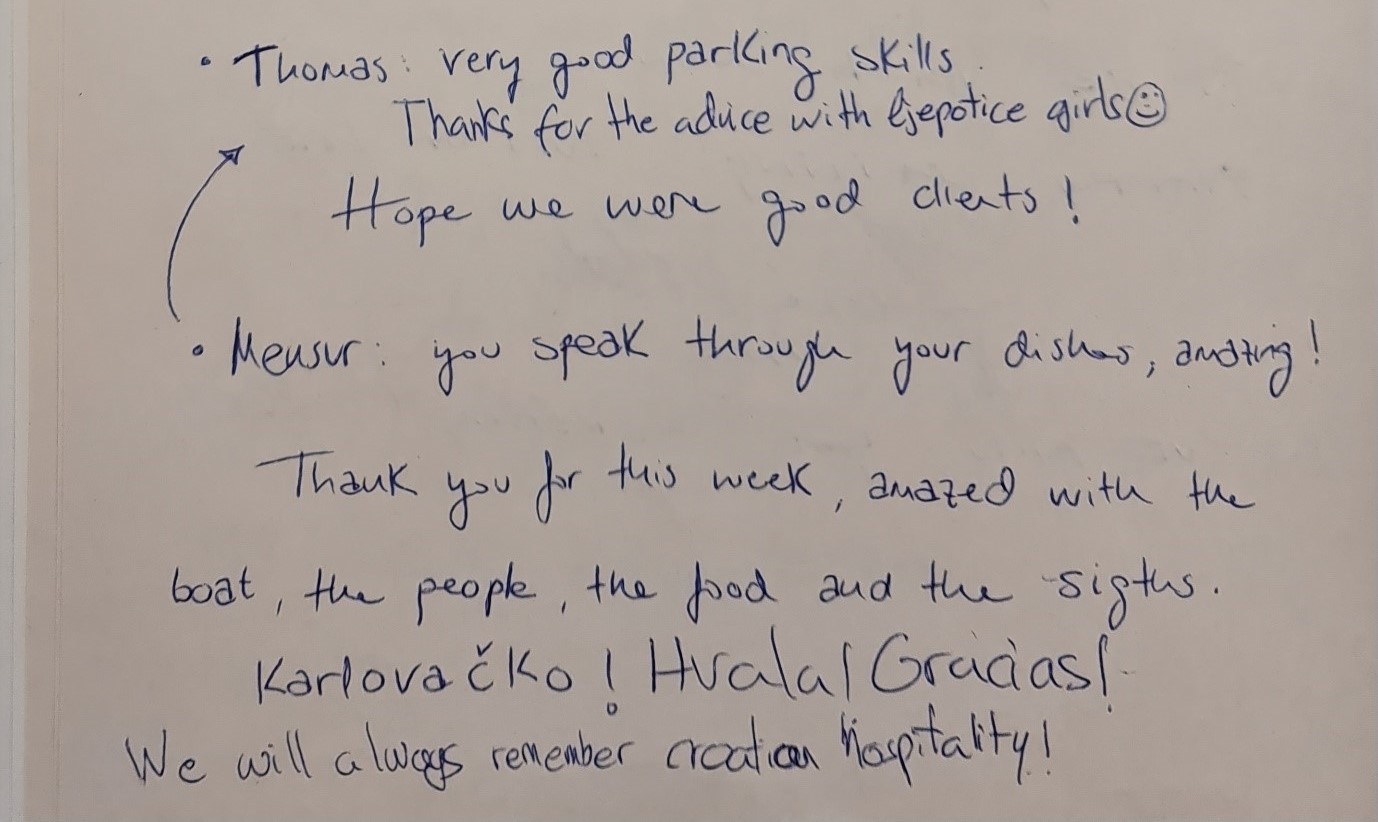 • Thomas: very good parking skills.
Thanks for the advice with ljepotice girls☺
Hope we were good clients!
• Mensur: you speak through your dishes, amazing!
Thank you for this week, amazed with the
boat, the people, the food and the sigths.
Karlovačko! Hvala! Gracias!
We will always remember croatian hospitality!